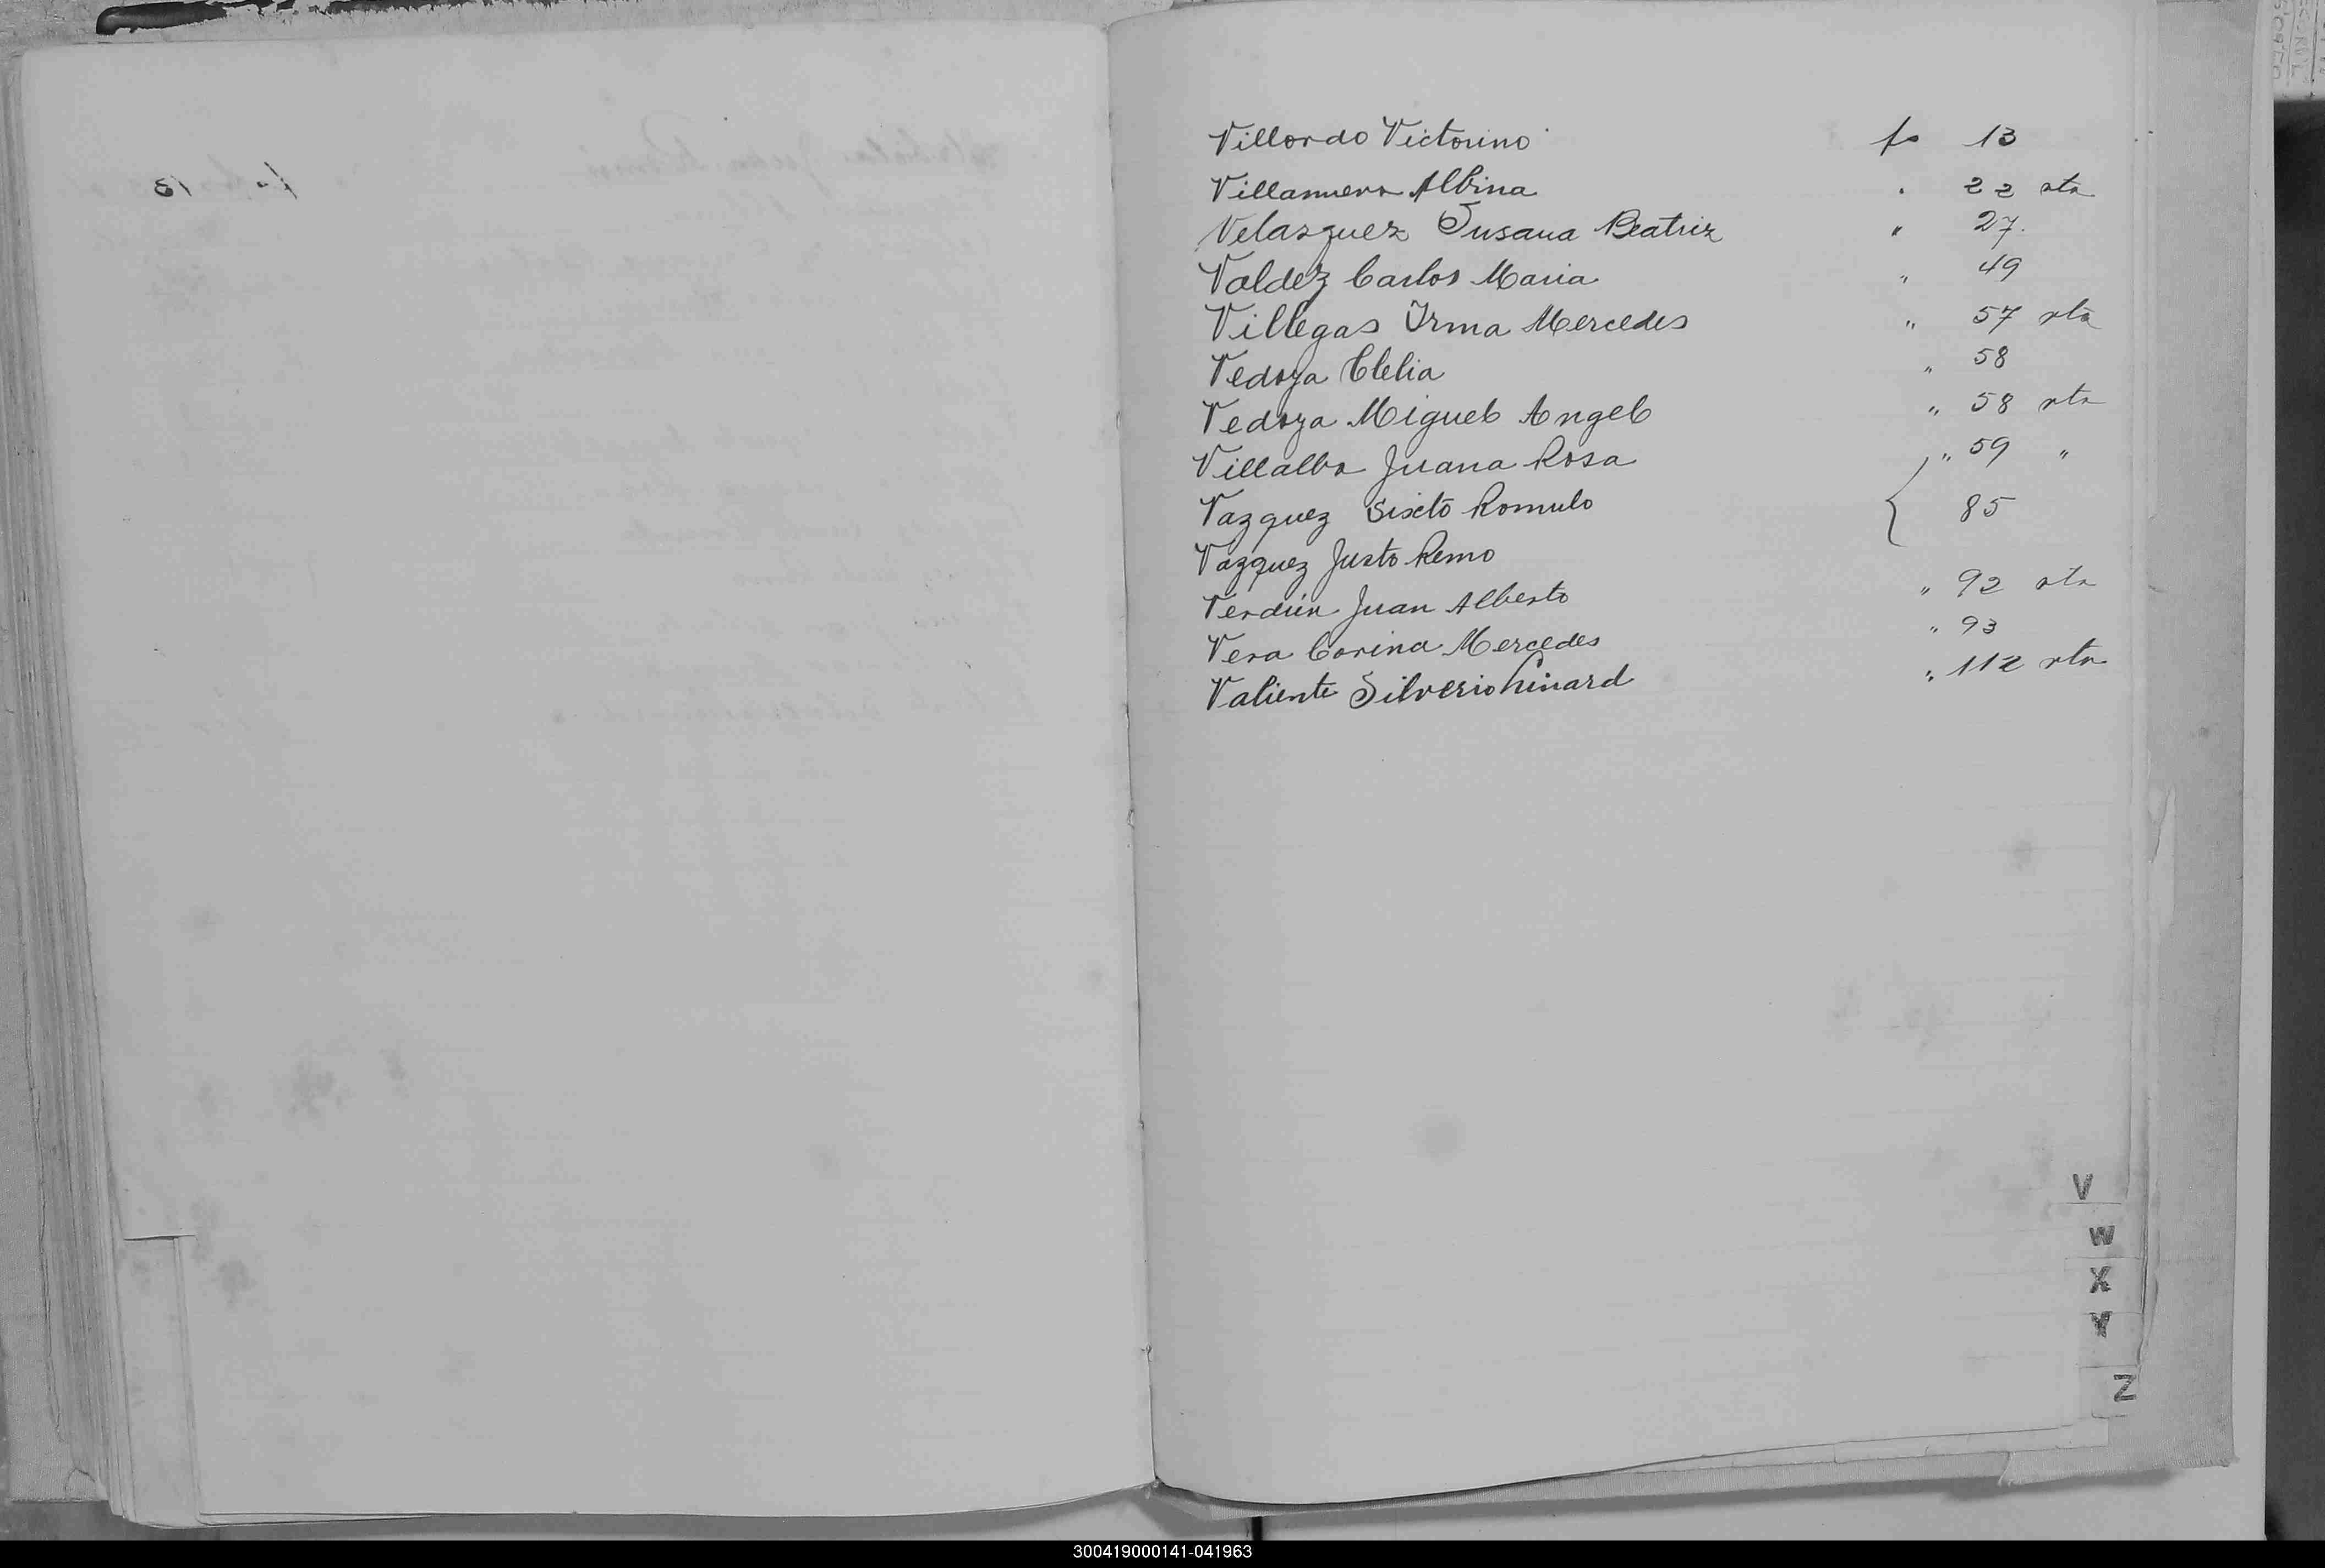 Villordo Victorino fs 13
Villanueva Albina . 22 vta
Velazquez Susana Beatriz " 27.
Valdez Carlos Maria " 49
Villegas Irma Mercedes " 57 vta
Vedoya Clelia " 58
Vedoya Miguel Angel " 58 vta
Villalba Juana Rosa " 59 "
Vazquez Sixto Romulo { 85
Vazquez Justo Remo
Verdún Juan Alberto " 92 vta
Vera Corina Mercedes " 93
Valiente Silverio " 112 vta
V
W
X
Y
Z
300419000141-041963